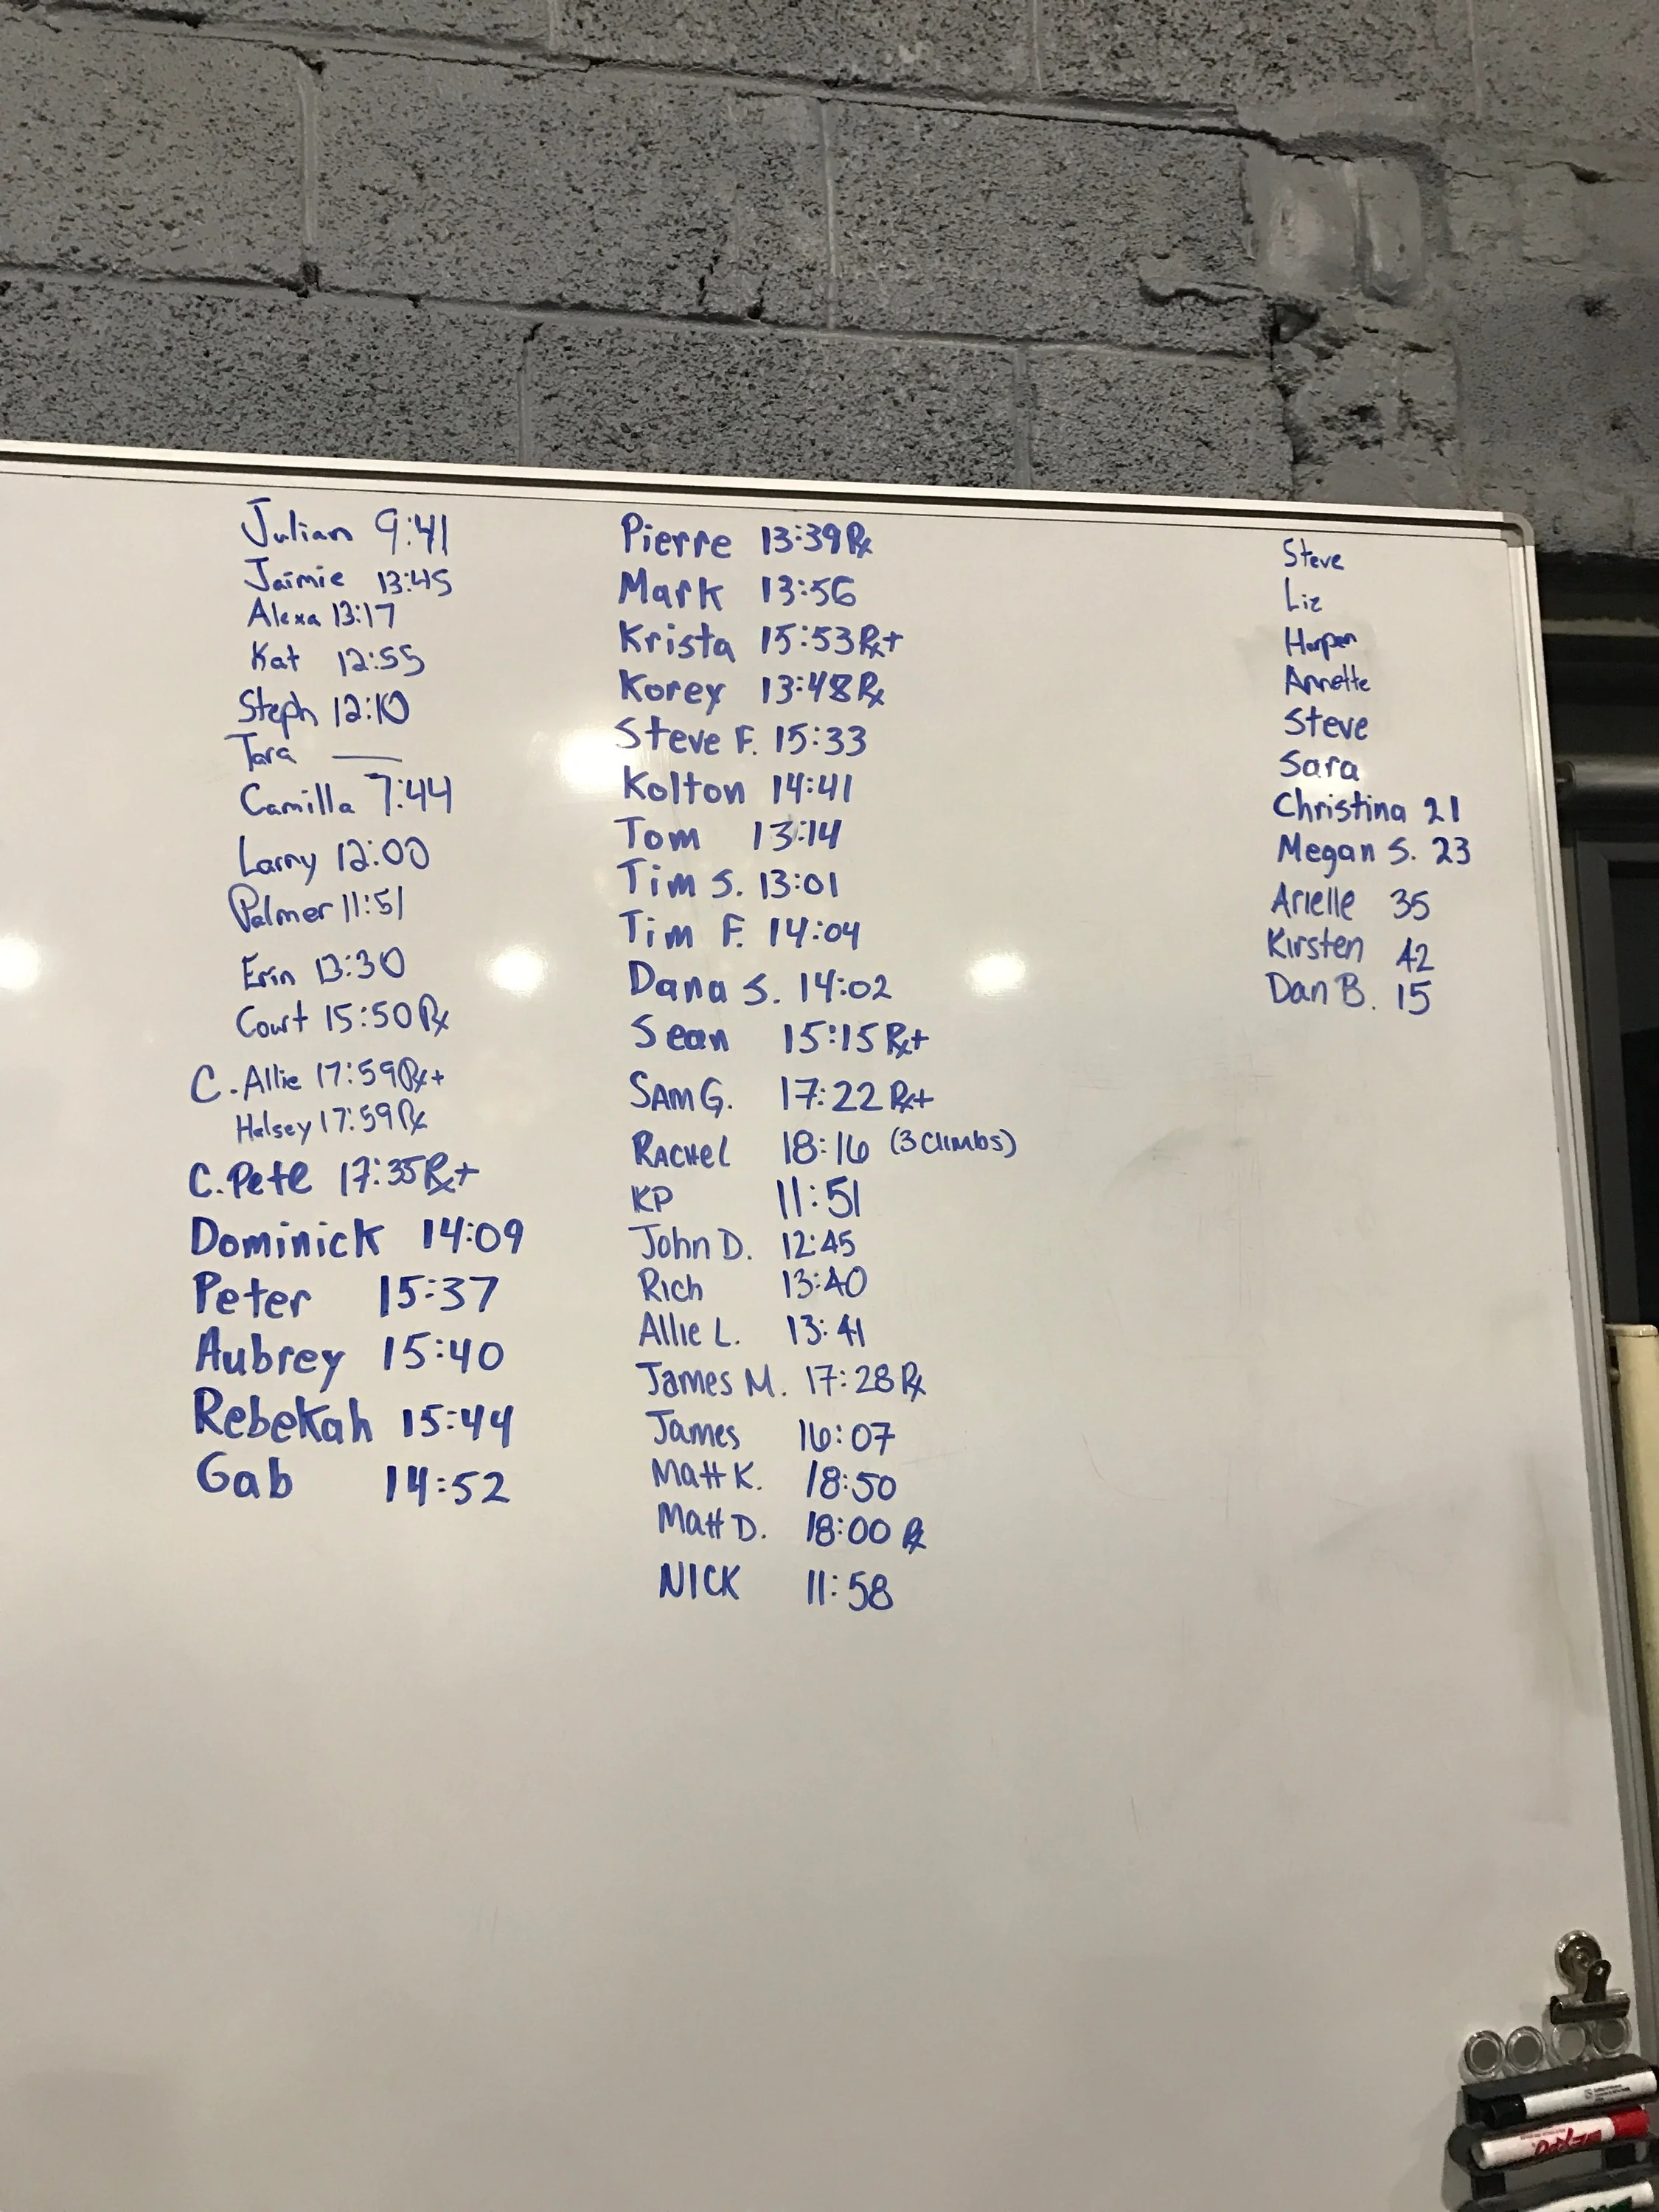 Julian 9:41
Jaimie 13:45
Alexa 13:17
Kat 12:55
Steph 12:10
Tara —
Camilla 7:44
Larry 12:00
Palmer 11:51
Erin 13:30
Court 15:50 Rx
C. Allie 17:59 Rx+
Halsey 17:59 Rx
C. Pete 17:35 Rx+
Dominick 14:09
Peter 15:37
Aubrey 15:40
Rebekah 15:44
Gab 14:52
Pierre 13:39 Rx
Mark 13:56
Krista 15:53 Rx+
Korey 13:48 Rx
Steve F. 15:33
Kolton 14:41
Tom 13:14
Tim S. 13:01
Tim F. 14:04
Dana S. 14:02
Sean 15:15 Rx+
SAM G. 17:22 Rx+
RACHEL 18:16 (3 climbs)
KP 11:51
John D. 12:45
Rich 13:40
Allie L. 13:41
James M. 17:28 Rx
James 16:07
Matt K. 18:50
Matt D. 18:00 Rx
NICK 11:58
Steve
Liz
Harper
Annette
Steve
Sara
Christina 21
Megan S. 23
Arielle 35
Kirsten 42
Dan B. 15
EXPO